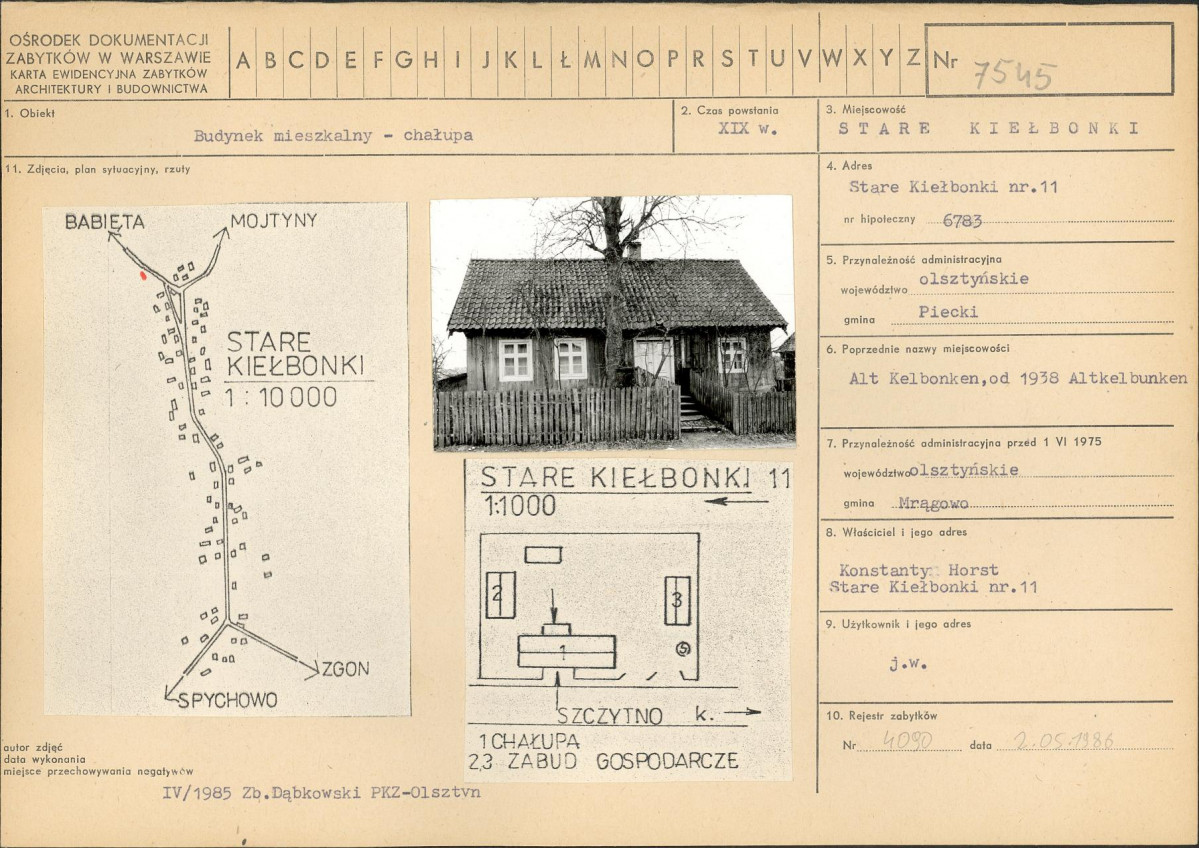 OŚRODEK DOKUMENTACJI
ZABYTKÓW W WARSZAWIE
KARTA EWIDENCYJNA ZABYTKÓW
ARCHITEKTURY I BUDOWNICTWA
A B C D E F G H I J K L Ł M N O P R S T U V W X Y Z
Nr 7545
1. Obiekt
Budynek mieszkalny - chałupa
2. Czas powstania
XIX w.
3. Miejscowość
STARE KIEŁBONKI
11. Zdjęcia, plan sytuacyjny, rzuty
BABIĘTA
MOJTYNY
STARE
KIEŁBONKI
1:10000
ZGON
SPYCHOWO
STARE KIEŁBONKI 11
1:1000
2
3
1
5
SZCZYTNO k.
1 CHAŁUPA
2,3 ZABUD GOSPODARCZE
4. Adres
Stare Kiełbonki nr.11
nr hipoteczny 6783
5. Przynależność administracyjna
województwo olsztyńskie
gmina Piecki
6. Poprzednie nazwy miejscowości
Alt Kelbonken,od 1938 Altkelbunken
7. Przynależność administracyjna przed 1 VI 1975
województwo olsztyńskie
gmina Mrągowo
8. Właściciel i jego adres
Konstanty Horst
Stare Kiełbonki nr.11
9. Użytkownik i jego adres
j.w.
10. Rejestr zabytków
Nr 4090 data 2.05.1986
autor zdjęć
data wykonania
miejsce przechowywania negatywów
IV/1985 Zb.Dąbkowski PKZ-Olsztyn